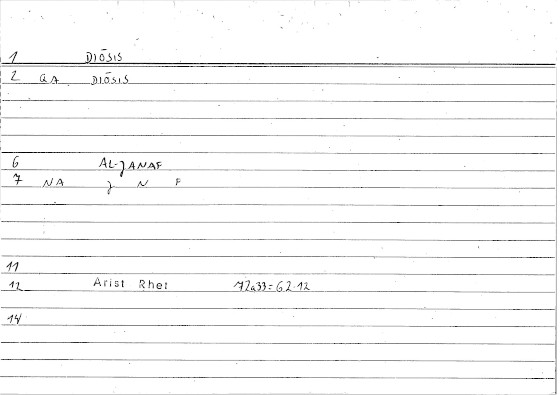 1 DIŌSIS
2 QA DIŌSIS
6 AL-ȝANAF
7 NA ȝ N F
11
12 Arist Rhet 72a33=62.12
14